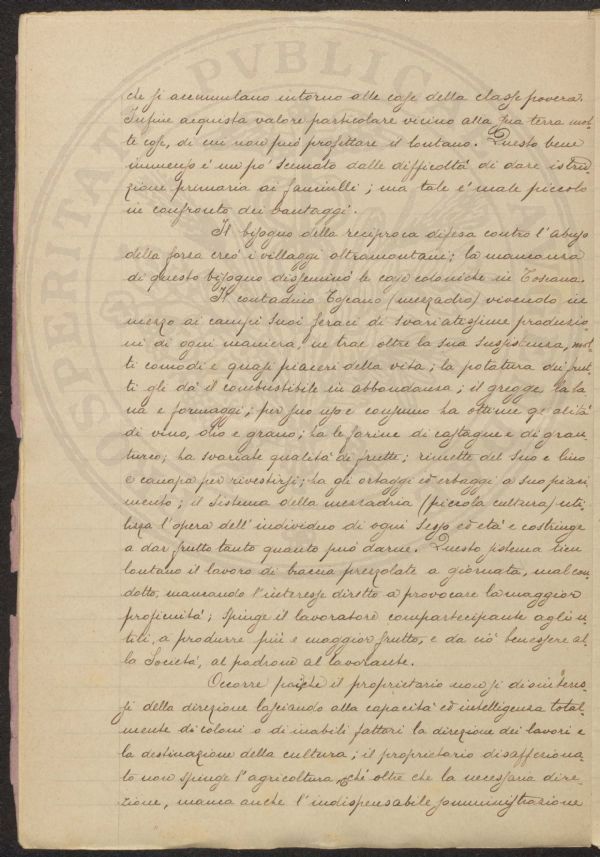 che si accumulano intorno alle case della classe povera.
Infine acquista valore particolare vicino alla sua terra mol-
te cose, di cui non può profittare il lontano. Questo bene
immenso è un po' scemato dalle difficoltà di dare istru-
zione primaria ai fanciulli; ma tale è male piccolo
in confronto dei vantaggi.
Il bisogno della reciproca difesa contro l'abuso
della forza creò i villaggi oltramontani; la mancanza
di questo bisogno disseminò le case coloniche in Toscana.
Il contadino Toscano (mezzadro) vivendo in
mezzo ai campi suoi feraci di svariatissime produzio-
ni di ogni maniera, ne trae oltre la sua sussistenza, mol-
ti comodi e quasi piaceri della vita; la potatura dei frut-
ti gli dà il combustibile in abbondanza; il gregge la la
na e formaggi; per suo uso e consumo ha ottime qualità
di vino, olio e grano; ha le farine di castagne e di gran-
turco; ha svariate qualità di frutte; rimette del suo e lino
e canapa per rivestirsi; ha gli ortaggi ed erbaggi a suo piaci
mento; il sistema della mezzadria (piccola cultura) uti-
lizza l'opera dell'individuo di ogni sesso ed età e costringe
a dar frutto tanto quanto può darne. Questo sistema tien
lontano il lavoro di braccia prezzolate a giornata, mal con
dotto, mancando l'interesse diretto a provocare la maggior
proficuità; spinge il lavoratore compartecipante agli u-
tili, a produrre più e maggior frutto, e da ciò benessere al-
la Società, al padrone al lavorante.
Occorre poichè il proprietario non si disinteres-
si della direzione lasciando alla capacità ed intelligenza total-
mente di coloni o di inabili fattori la direzione dei lavori e
la destinazione della cultura; il proprietario disaffeziona-
to non spinge l'agricoltura, chè oltre che la necessaria dire-
zione, manca anche l'indispensabile somministrazione
PVBLIC